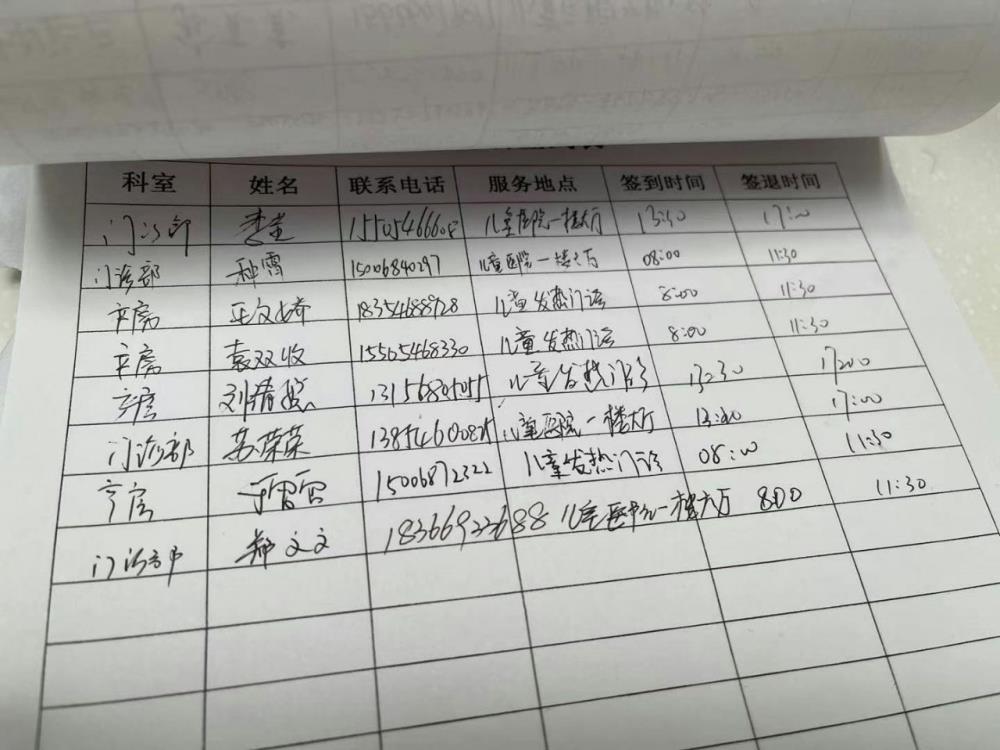 科室 姓名 联系电话 服务地点 签到时间 签退时间
门诊部 15505466608 儿童医院一楼大厅 13:40 17:00
门诊部 种雪 15006840297 儿童医院一楼大厅 08:00 11:30
产房 王文娇 18354688928 儿童发热门诊 8:00 11:30
产房 袁双收 15565468330 儿童发热门诊 8:00 11:30
产房 刘倩 儿童发热门诊 13:30 17:00
门诊部 苏荣荣 儿童医院一楼大厅 13:40 17:00
产房 于雷雷 15006872322 儿童发热门诊 08:00 11:30
门诊部 郑文文 18366922688 一楼大厅 800 11:30